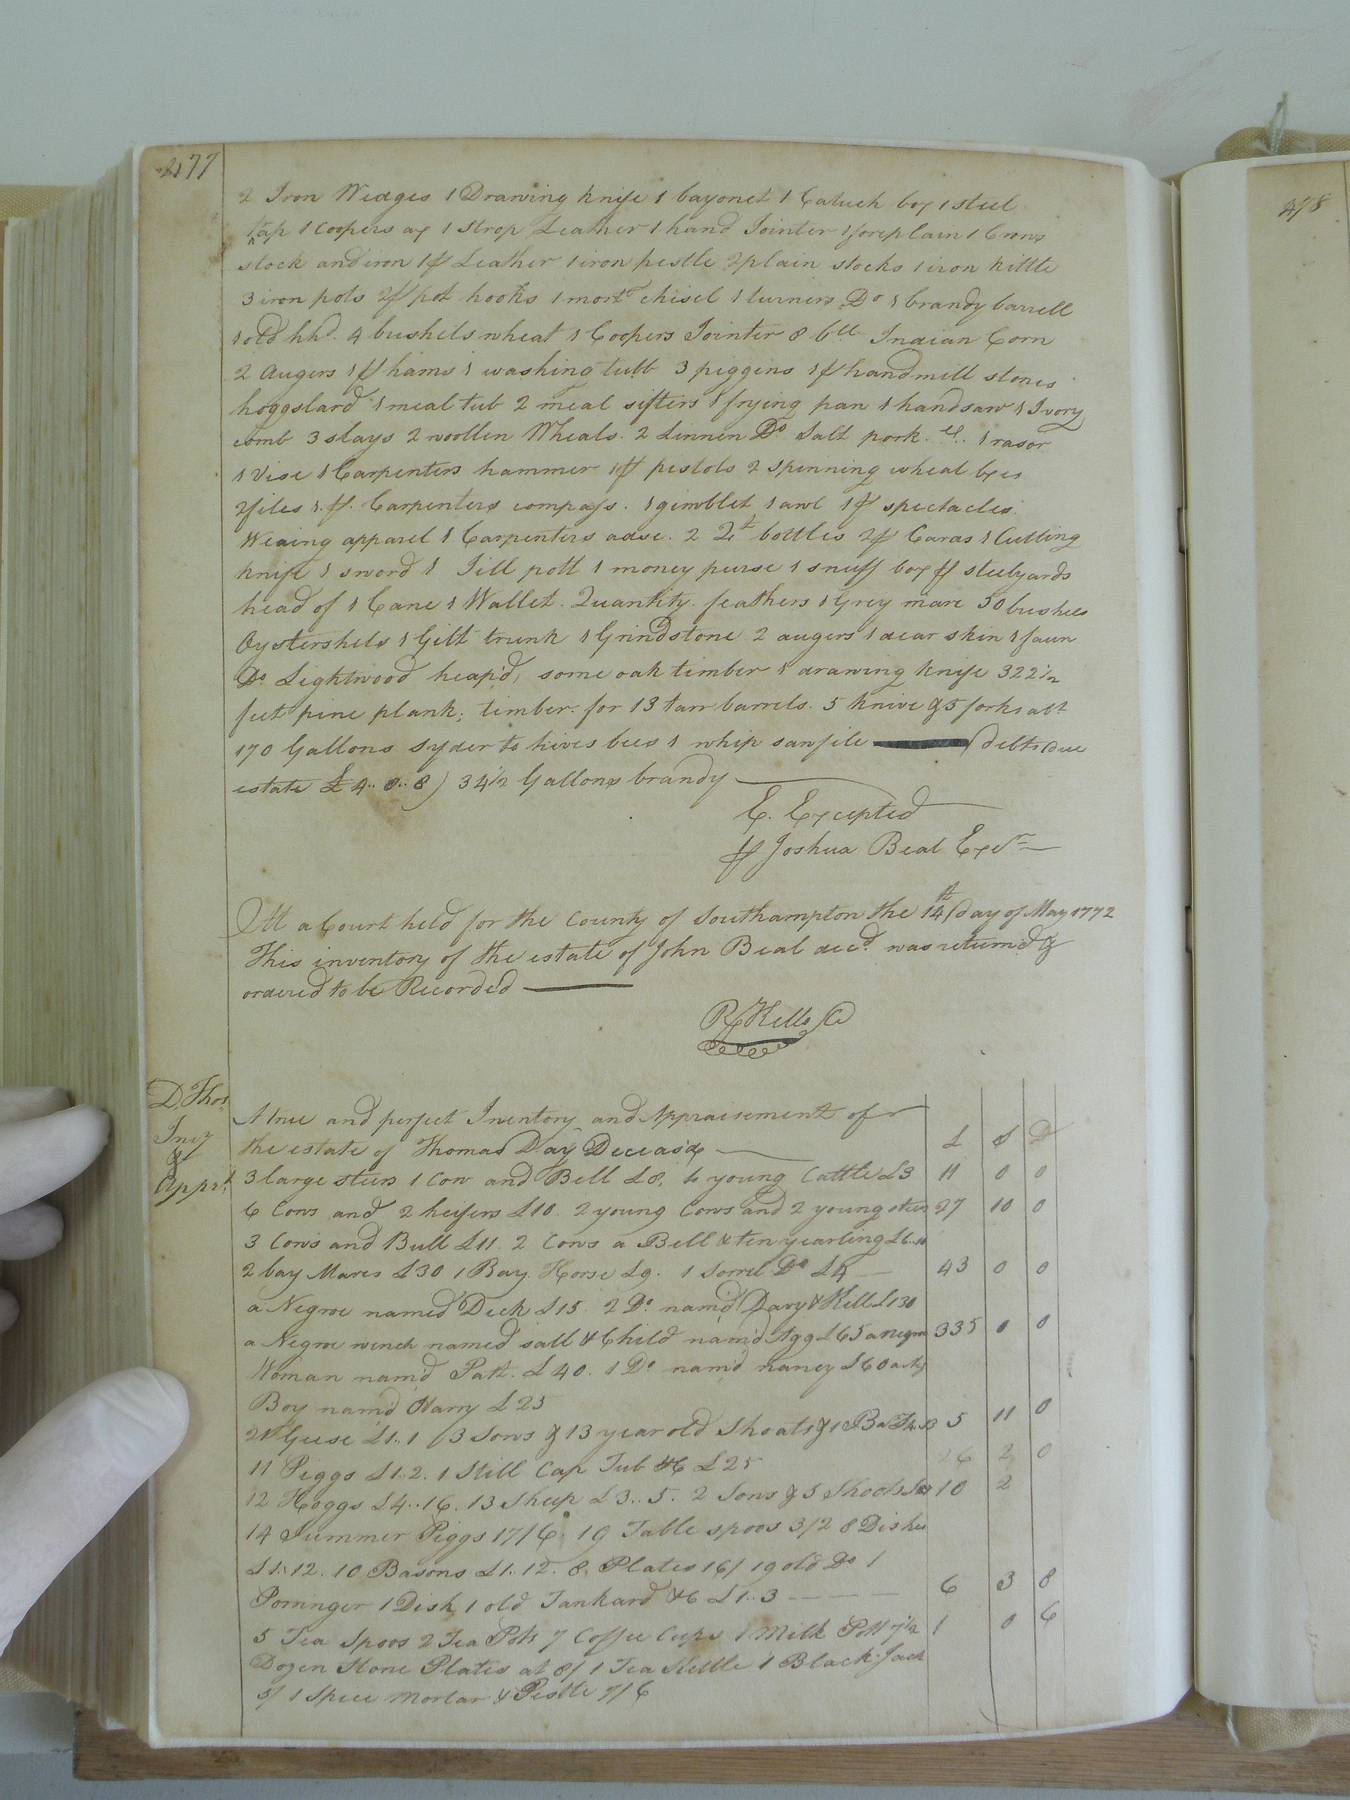 477
478
2 Iron Wedges 1 Drawing knife 1 bayonet 1 Catuch box 1 steel
trap 1 Coopers ax 1 Strop Leather 1 hand Jointer 1 foreplain 1 Crows
stock and iron 1 pr Leather 1 iron pestle 2 plain stocks 1 iron kittle
3 iron pots 2 pr pot hooks 1 mortr chisel 1 turners Do 1 brandy barrell
1 old hhd. 4 bushels wheat 1 Coopers Jointer 8 bll Indian Corn
2 Augers 1 pr hams 1 washing tubb 3 piggins 1 pr handmill stones
hoggslard 1 meal tub 2 meal sifters 1 frying pan 1 handsaw 1 Ivory
comb 3 slays 2 woollen Wheals. 2 Linnen Do Salt pork. &. 1 rasor
1 Vise 1 Carpenters hammer 1 pr pistols 2 spinning wheal
2 files 1 pr. Carpenters compass. 1 gimblet 1 awl 1 pr spectacles.
Weaing apparel 1 Carpenters adse. 2 Qt bottles 2 pr Cards 1 Cutting
knife 1 sword 1 Jill pott 1 money purse 1 snuff box pr steelyards
head of 1 Cane 1 Wallet. Quantity feathers 1 Grey mare 50 bushels
Oystershels 1 Gilt trunk 1 Grindstone 2 augers 1 dear skin 1 faun
Do Lightwood heap'd, some oak timber 1 drawing knife 322 1/2
feet pine plank; timber for 13 tarr barrels. 5 knive & 5 forks abt
170 Gallons syder to hives bees 1 whip saw file debts due
estate £ 4..0..8) 34 1/2 Gallons brandy
E. Excepted
pr Joshua Beal Exr
At a Court held for the County of Southampton the 14th day of May 1772
This inventory of the estate of John Beal decd was returned &
ordered to be Recorded
R Kello C
D. Thos.
Invy
&
Apprt.
A true and perfect Inventory and Appraisement of
the estate of Thomas Day Deceasd £ S D
3 large steers 1 Cow and Bell £8. 4 young Cattle £3 11 0 0
6 Cows and 2 heifers £10. 2 young Cows and 2 young steers 27 10 0
3 Cows and Bull £11. 2 Cows a Bell & ten yearling £6..10
2 bay Mares £30 1 Bay Horse £9. 1 Sorrel Do £4 43 0 0
a Negroe named Deck £15 2 Do. nam'd Davy & Kill £130
a Negroe wench named sall & Child nam'd Agg £65 a negroe 335 0 0
Woman nam'd Patt. £40. 1 Do nam'd nancy £60 a
Boy nam'd Harry £25
21 Geese £1..1 3 Sows & 13 year old Shoats & 1 5 11 0
11 Piggs £1.2. 1 Still Cap Tub &c £25 26 2 0
12 Hoggs £4..16. 13 Sheep £3..5. 2 Sows & 5 Shoots 10 2
14 Summer Piggs 17/6. 19 Table spoos 3/2 8 Dishes
£1..12. 10 Basons £1.12. 8. Plates 16/ 19 old Do 1
Porringer 1 Dish 1 old Tankard &c £1..3 6 3 8
5 Tea Spoos 2 Tea Pots 7 Coffee Cups 1 Milk Pott 7 1/2 1 0 6
Dozen Stone Plates at 8/ 1 Tea Kettle 1 Black Jack
5/ 1 Spice Mortar & Pestle 7/6